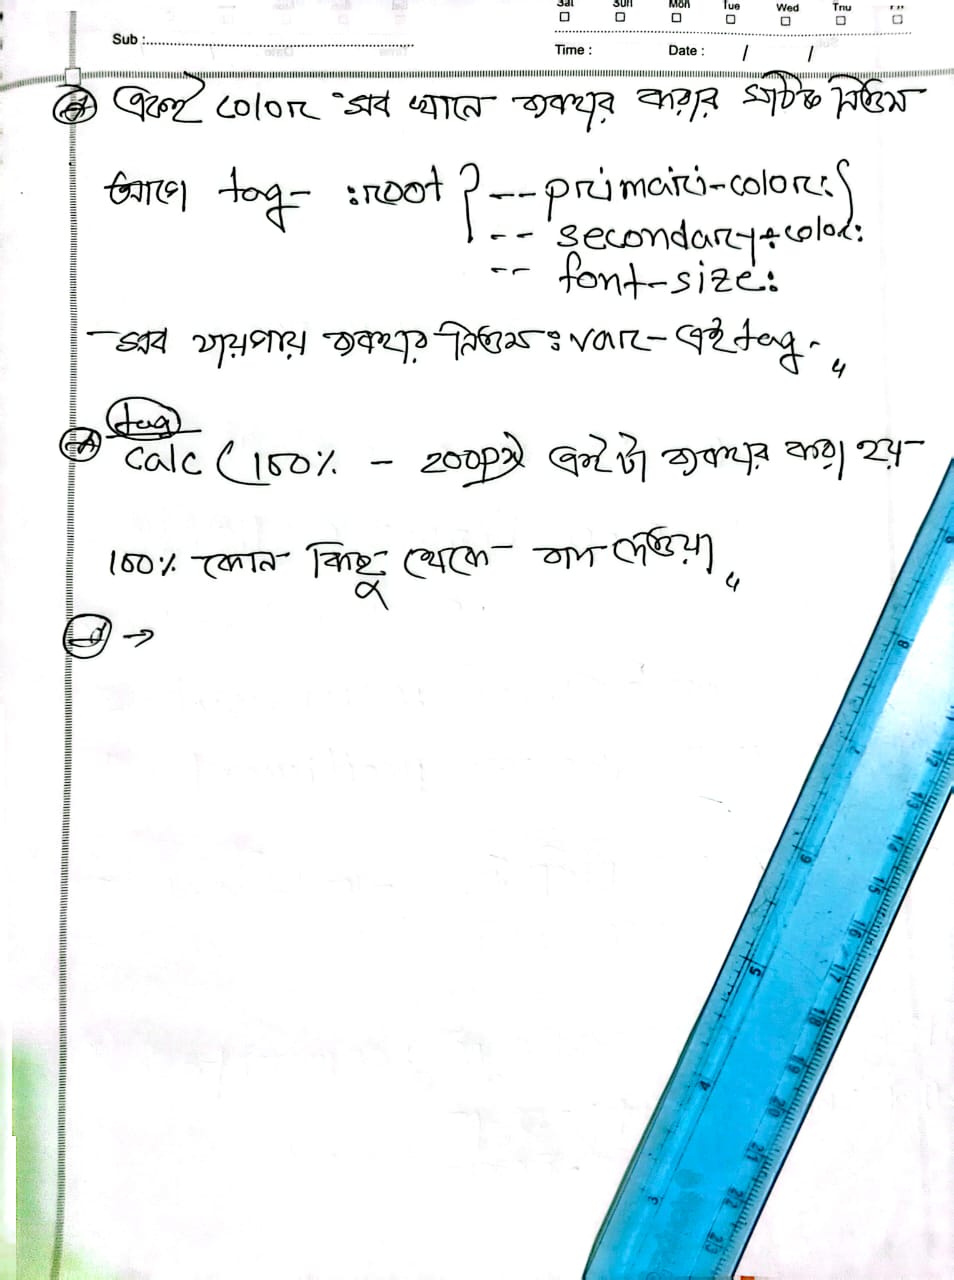 Sat Sun Mon Tue Wed Thu Fri
Sub :
Time : Date : / /
একই color সব খানে ব্যবহার করার সঠিক নিওম
আগে tag- :root { --primari-color: }
-- secondary-color:
-- font-size:
সব যায়গায় ব্যবহার নিওম : var- এই tag-
tag
calc (100% - 200px) এইটা ব্যবহার করা হয়-
100% কোন কিছু থেকে বাদ দেওয়া
→
8
7
6
5
4
3
12
13
14
15
16
17
18
19
20
21
22
23